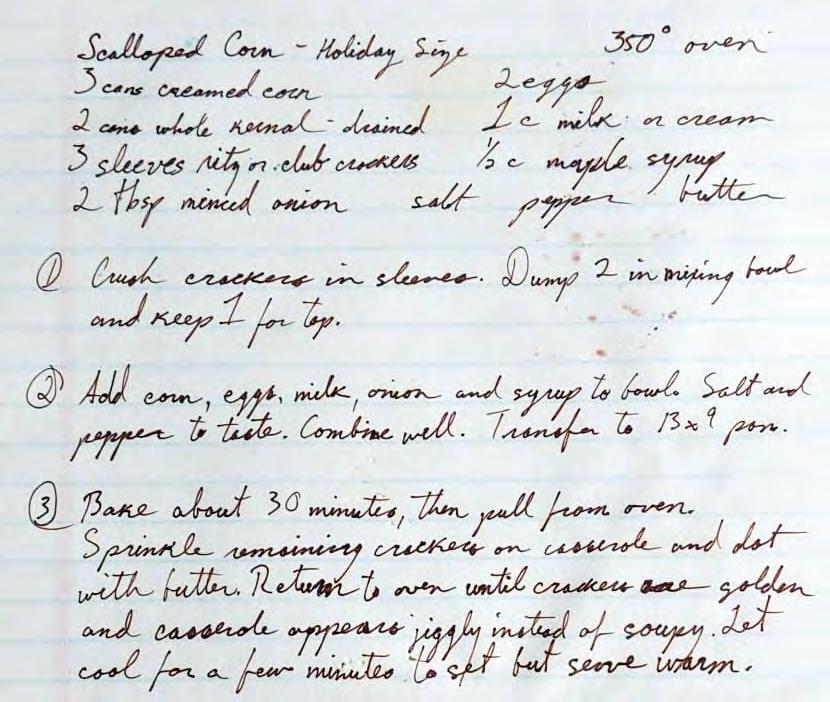 Scalloped Corn - Holiday Size 350° oven
3 cans creamed corn 2 eggs
2 cans whole kernal - drained 1 c milk or cream
3 sleeves ritz or club crackers ½ c maple syrup
2 tbsp minced onion salt pepper butter
① Crush crackers in sleeves. Dump 2 in mixing bowl
and keep 1 for top.
② Add corn, eggs, milk, onion and syrup to bowl. Salt and
pepper to taste. Combine well. Transfer to 13x9 pan.
③ Bake about 30 minutes, then pull from oven.
Sprinkle remaining crackers on casserole and dot
with butter. Return to oven until crackers are golden
and casserole appears jiggly instead of soupy. Let
cool for a few minutes to set but serve warm.